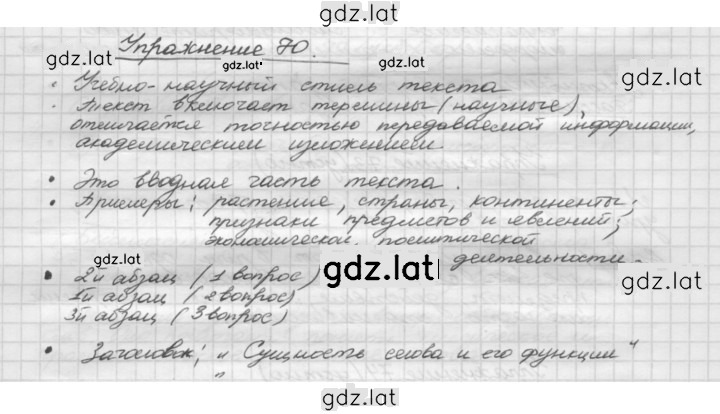 gdz.lat
gdz.lat
Упражнение 70.
gdz.lat
gdz.lat
gdz.lat
· Учебно-научный стиль текста
· Текст включает термины (научные),
отличается точностью передаваемой информации,
академическим изложением.
• Это вводная часть текста.
• Примеры: растение, страны, континенты;
признаки предметов и явлений;
экономической. политической
деятельности.
gdz.lat
gdz.lat
gdz.lat
• 2й абзац (1 вопрос)
1й абзац (2 вопрос)
3й абзац (3 вопрос)
• Заголовок: „ Сущность слова и его функции "
„
gdz.lat
gdz.lat
gdz.lat